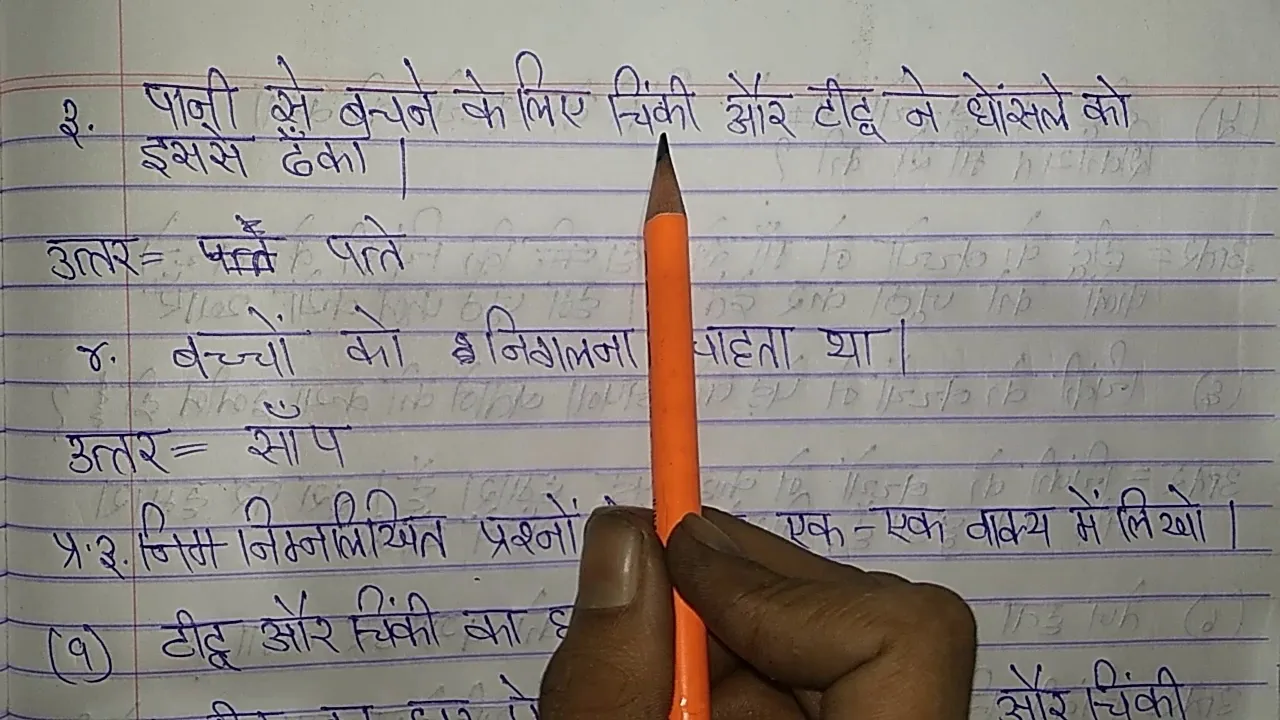 ३. पानी से बचने के लिए चिंकी और टीटू ने घोंसले को
इससे ढँका |
उत्तर= पत्ते
४. बच्चों को निगलना चाहता था |
उत्तर= साँप
प्र.३. निम्नलिखित प्रश्नों एक-एक वाक्य में लिखो |
(१) टीटू और चिंकी का
और चिंकी